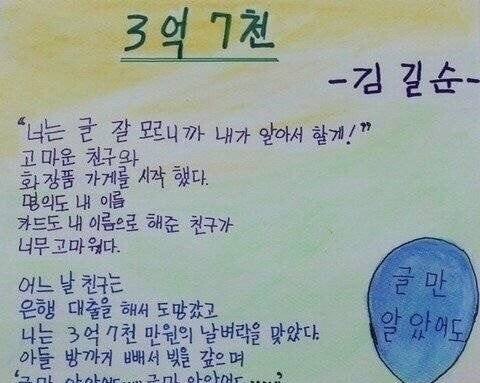 3억 7천
-김 길순-
“너는 글 잘 모르니까 내가 알아서 할게!”
고마운 친구와
화장품 가게를 시작 했다.
명의도 내 이름
카드도 내 이름으로 해준 친구가
너무 고마웠다.
어느 날 친구는
은행 대출을 해서 도망갔고
나는 3억 7천 만원의 날벼락을 맞았다.
아들 방까지 빼서 빚을 갚으며
‘글만 알았어도……글만 알았어도……’
글 만
알 았어도